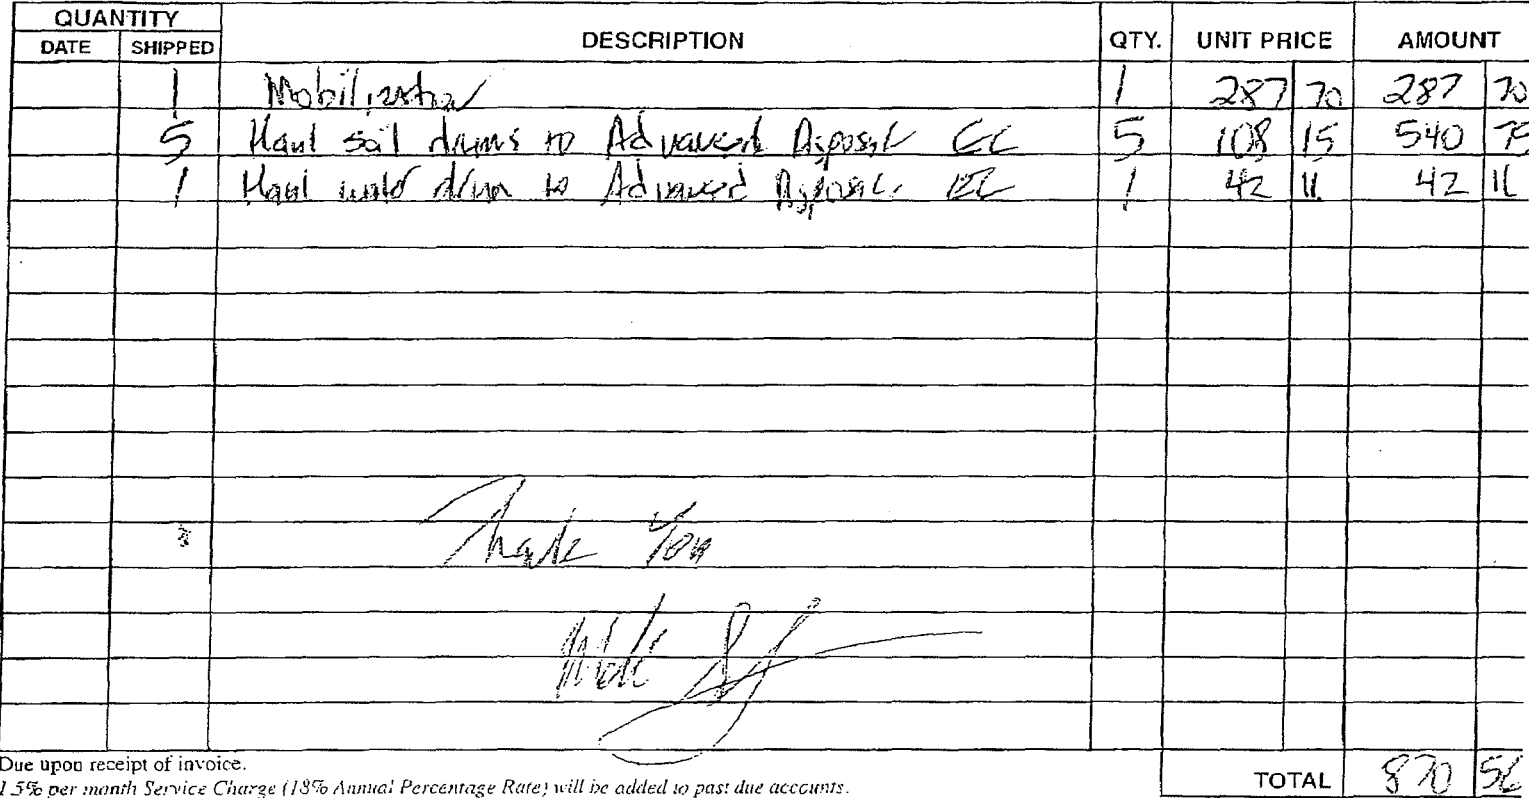 QUANTITY
DATE SHIPPED DESCRIPTION QTY. UNIT PRICE AMOUNT
1 Mobilization 1 287 70 287 70
5 Haul soil drums to Advanced Disposal EC 5 108 15 540 75
1 Haul drum to Advanced Disposal EC 1 42 11 42 11
Thank You
Due upon receipt of invoice.
TOTAL 870 56
1.5% per month Service Charge (18% Annual Percentage Rate) will be added to past due accounts.